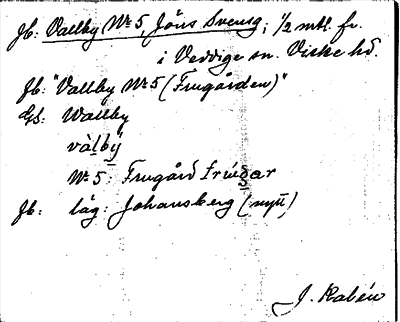 Jb: Vallby No 5, Jöns Svensg; 1/2 mtl. fr.
i Veddige sn. Viske hd.
Jb: "Vallby No 5 (Frugården)"
Gs: Wallby
vàlbÿ
No 5: Frugård
Jb: låg: Johansberg (nytt)
J. Kalén